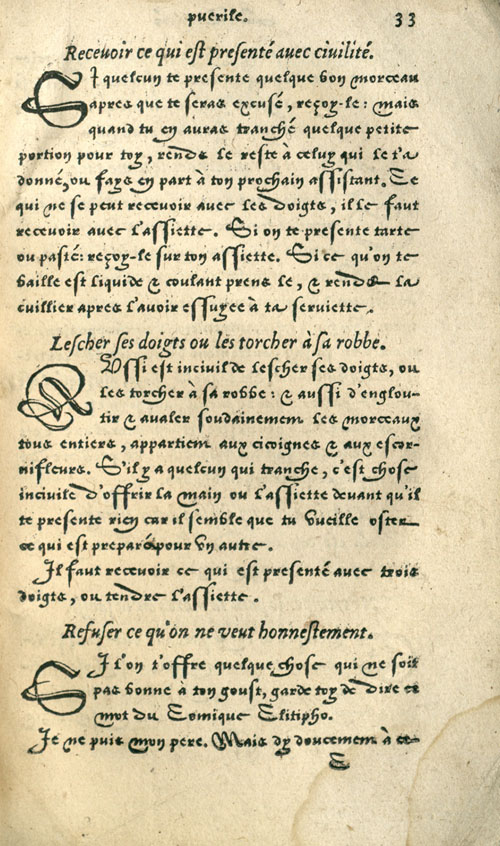 puerile. 33
Recevoir ce qui est presenté avec civilité.
SI quelcun te presente quelque bon morceau
apres que te seras excusé, reçoy-le: mais
quand tu en auras tranché quelque petite
portion pour toy, rends le reste à celuy qui le t'a
donné, ou fays en part à ton prochain assistant. Ce
qui ne se peut recevoir avec les doigts, il le faut
recevoir avec l'assiette. Si on te presente tarte
ou pasté: reçoy-le sur ton assiette. Si ce qu'on te
baille est liquide & coulant prens le, & rends la
cuillier apres l'avoir essuyee à ta serviette.
Lescher ses doigts ou les torcher à sa robbe.
AUssi est incivil de lescher ses doigts, ou
les torcher à sa robbe: & aussi d'englou-
tir & avaler soudainement les morceaux
tous entiers, appartient aux cicoignes & aux escor-
nifleurs. S'il y a quelcun qui tranche, c'est chose
incivile d'offrir la main ou l'assiette devant qu'il
te presente rien car il semble que tu vueille oster
ce qui est preparé pour vn autre.
Il faut recevoir ce qui est presenté avec trois
doigts, ou tendre l'assiette.
Refuser ce qu'on ne veut honnestement.
SI l'on t'offre quelque chose qui ne soit
pas bonne à ton goust, garde toy de dire ce
mot du Comique Clitipho.
Je ne puis mon pere. Mais dy doucement à ce-
C